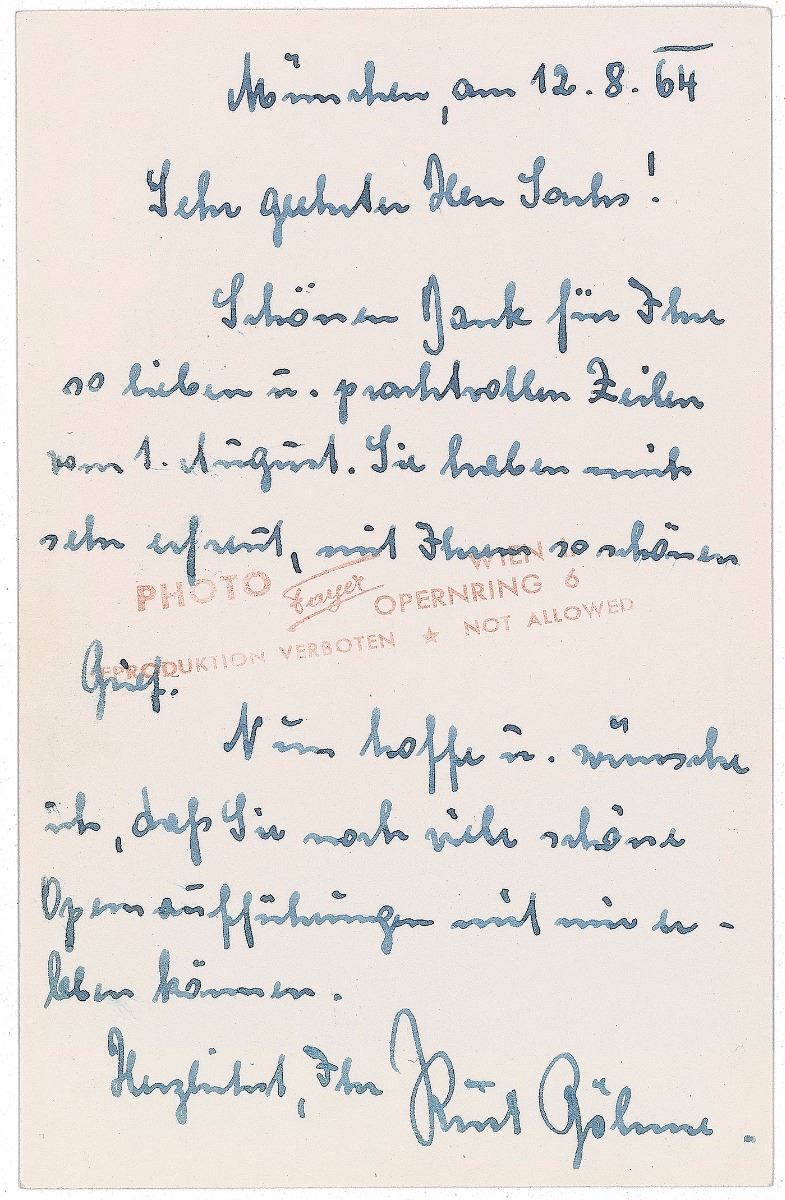 München, am 12. 8. 64
Sehr geehrter Herr Sachs!
Schönen Dank für Ihre
so lieben u. prachtvollen Zeilen
vom 1. August. Sie haben mich
sehr erfreut, mit Ihrem so schönen
WIEN I.
PHOTO Fayer OPERNRING 6
REPRODUKTION VERBOTEN ★ NOT ALLOWED
Brief.
Nun hoffe u. wünsche
ich, daß Sie noch viele schöne
Opernaufführungen mit mir er-
leben können.
Herzlichst, Ihr Kurt Böhme.